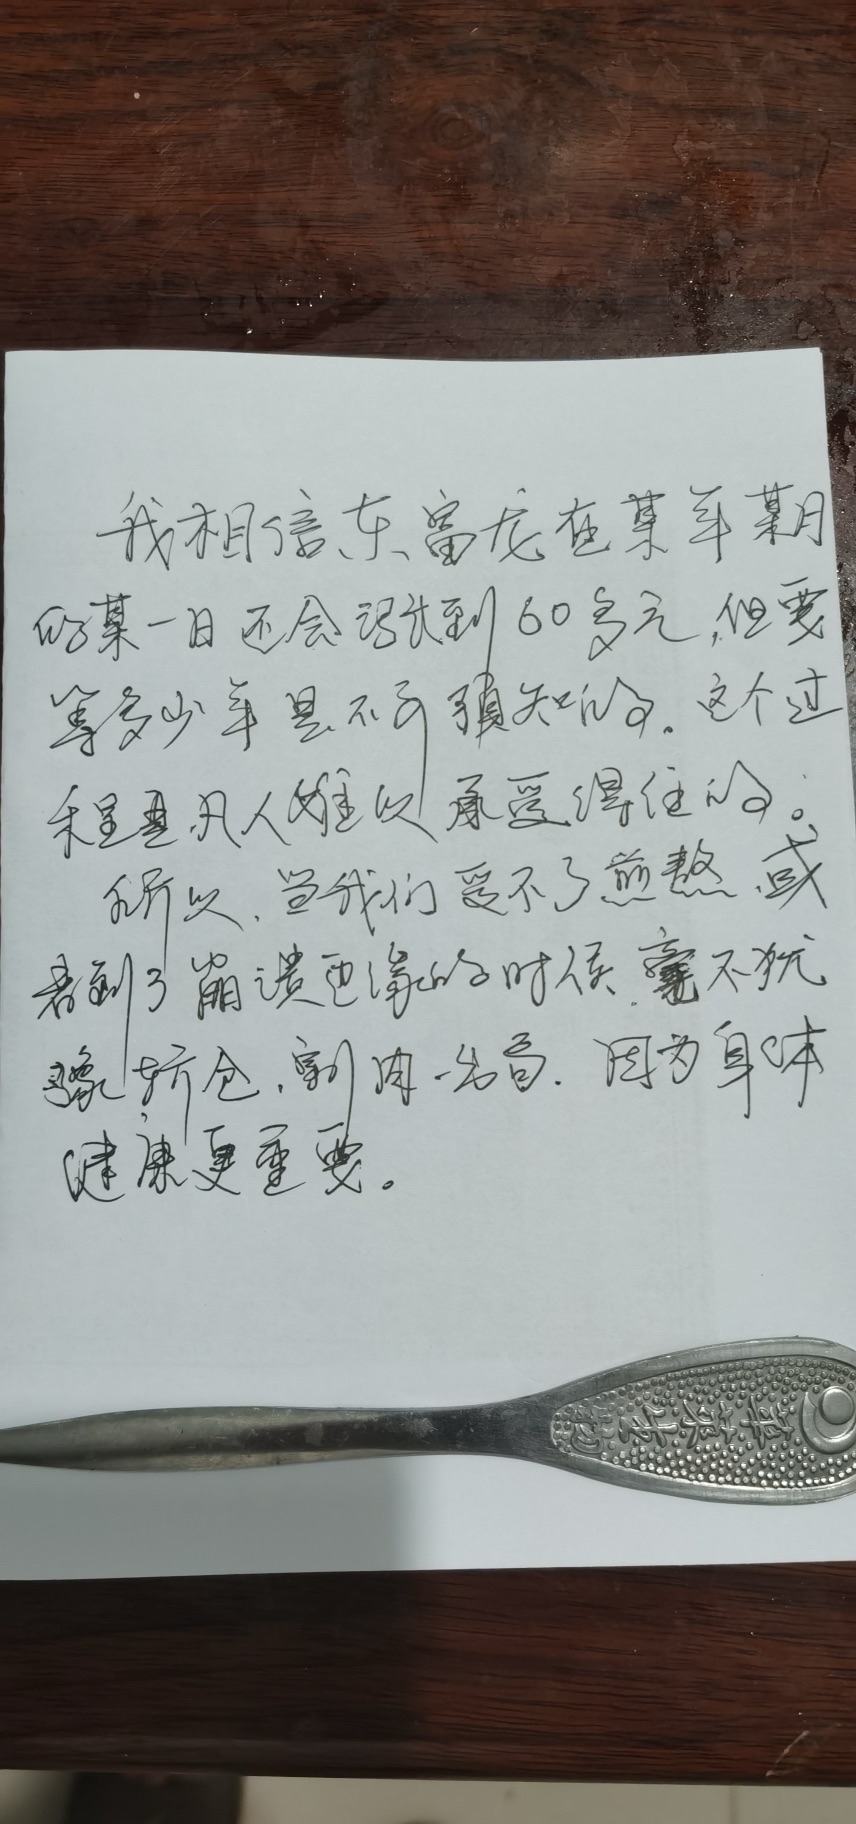 我相信东富龙在某年某月
的某一日还会涨到60多元,但要
等多少年是不可预知的。这个过
程是凡人难以承受得住的。
所以、当我们受不了煎熬、或
者到了崩溃边缘的时候、毫不犹
豫斩仓、割肉出局、因为身体
健康更重要。